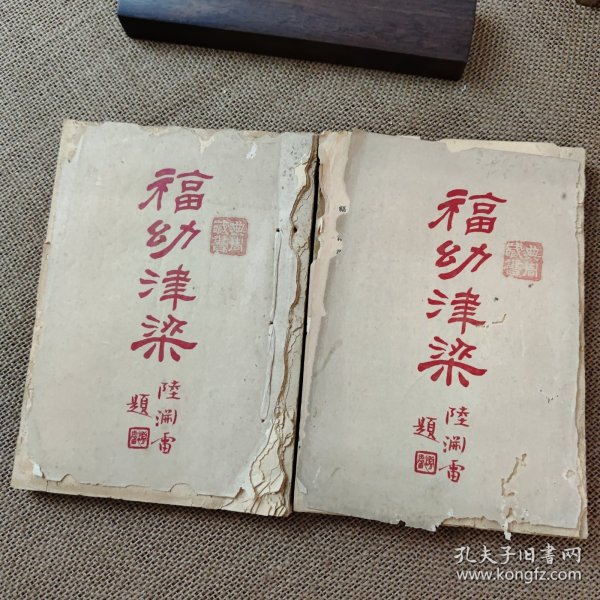 福幼津梁
陸渊雷
題
福幼津梁
陸渊雷
題
孔夫子旧書网
www.kongfz.com